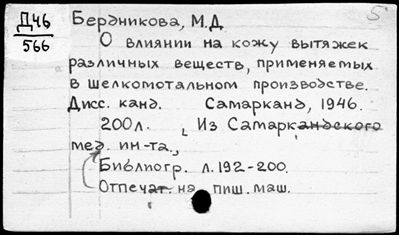 Д46
566
5
Бердникова, М.Д.
О влиянии на кожу вытяжек
различных веществ, применяемых
в шелкомотальном производстве.
Дисс. канд. Самарканд, 1946.
200л. Из Самаркандского
мед. ин-та.,
Библиогр. л.192-200.
Отпечат. на пиш. маш.